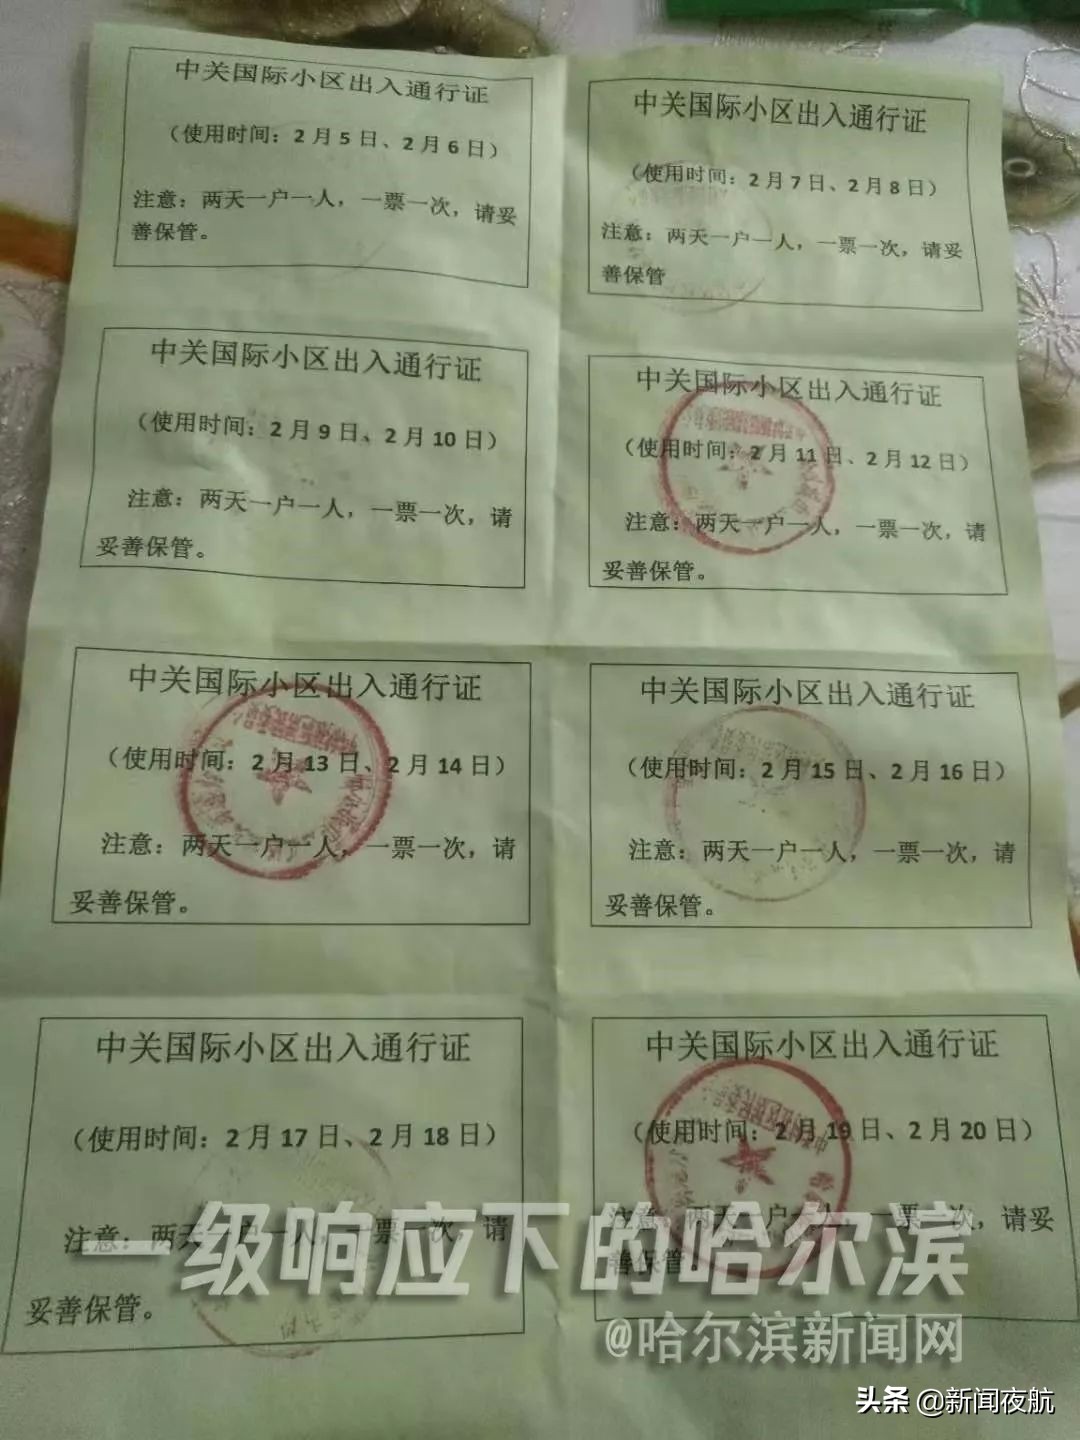 中关国际小区出入通行证
（使用时间：2月5日、2月6日）
注意：两天一户一人，一票一次，请妥
善保管。
中关国际小区出入通行证
（使用时间：2月7日、2月8日）
注意：两天一户一人，一票一次，请妥
善保管
中关国际小区出入通行证
（使用时间：2月9日、2月10日）
注意：两天一户一人，一票一次，请
妥善保管。
中关国际小区出入通行证
（使用时间：2月11日、2月12日）
注意：两天一户一人，一票一次，请
妥善保管。
中关国际小区出入通行证
（使用时间：2月13日、2月14日）
注意：两天一户一人，一票一次，请
妥善保管。
中关国际小区出入通行证
（使用时间：2月15日、2月16日）
注意：两天一户一人，一票一次，请
妥善保管。
中关国际小区出入通行证
（使用时间：2月17日、2月18日）
注意：两天一户一人，一票一次，请
妥善保管。
中关国际小区出入通行证
（使用时间：2月19日、2月20日）
注意：两天一户一人，一票一次，请妥
善保管。
一级响应下的哈尔滨
@哈尔滨新闻网
头条 @新闻夜航